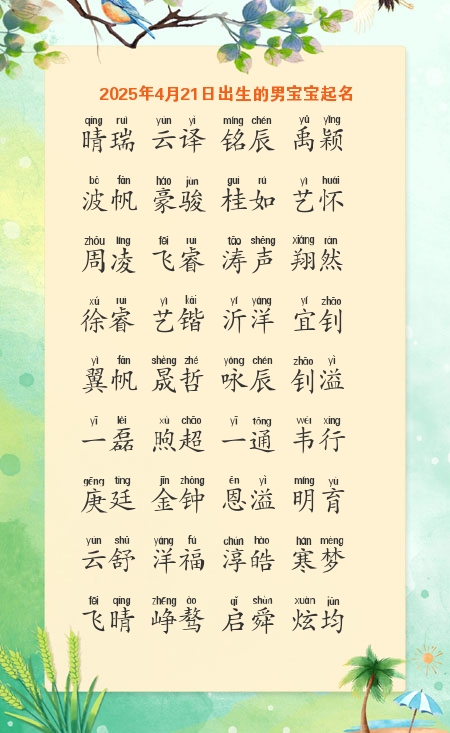 2025年4月21日出生的男宝宝起名
qíng ruì yún yì míng chén yǔ yǐng
晴瑞 云译 铭辰 禹颖
bō fān háo jùn guì rú yì huái
波帆 豪骏 桂如 艺怀
zhōu líng fēi ruì tāo shēng xiáng rán
周凌 飞睿 涛声 翔然
xú ruì yì kǎi yí yáng yí zhāo
徐睿 艺锴 沂洋 宜钊
yì fān shèng zhé yǒng chén zhāo yì
翼帆 晟哲 咏辰 钊溢
yī lěi xù chāo yī tōng wéi xíng
一磊 煦超 一通 韦行
gēng tíng jīn zhōng ēn yì míng yù
庚廷 金钟 恩溢 明育
yún shū yáng fú chún hào hán mèng
云舒 洋福 淳皓 寒梦
fēi qíng zhēng ào qǐ shùn xuàn jūn
飞晴 峥骜 启舜 炫均